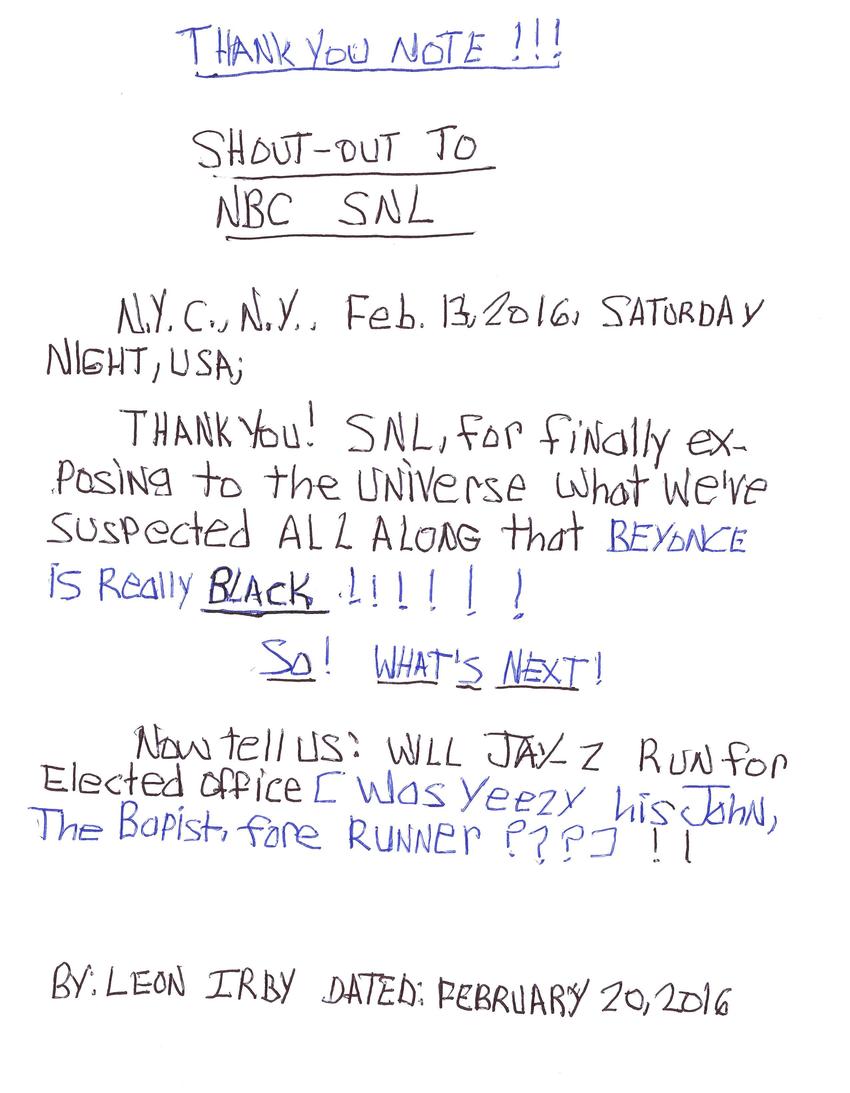 THANK YOU NOTE !!!
SHOUT-OUT TO
NBC SNL
N.Y.C., N.Y., Feb. 13, 2016, SATURDAY
NIGHT, USA;
THANK YOU! SNL, for finally ex-
posing to the UNIVerse what we've
suspected ALL ALONG that BEYONCE
is Really BLACK !!!!!!
SO! WHAT'S NEXT!
Now tell US: WILL JAY-Z RUN for
Elected office [ Was Yeezy his John,
The Bapist, fore RUNNer ???] !!
BY: LEON IRBY DATED: FEBRUARY 20, 2016